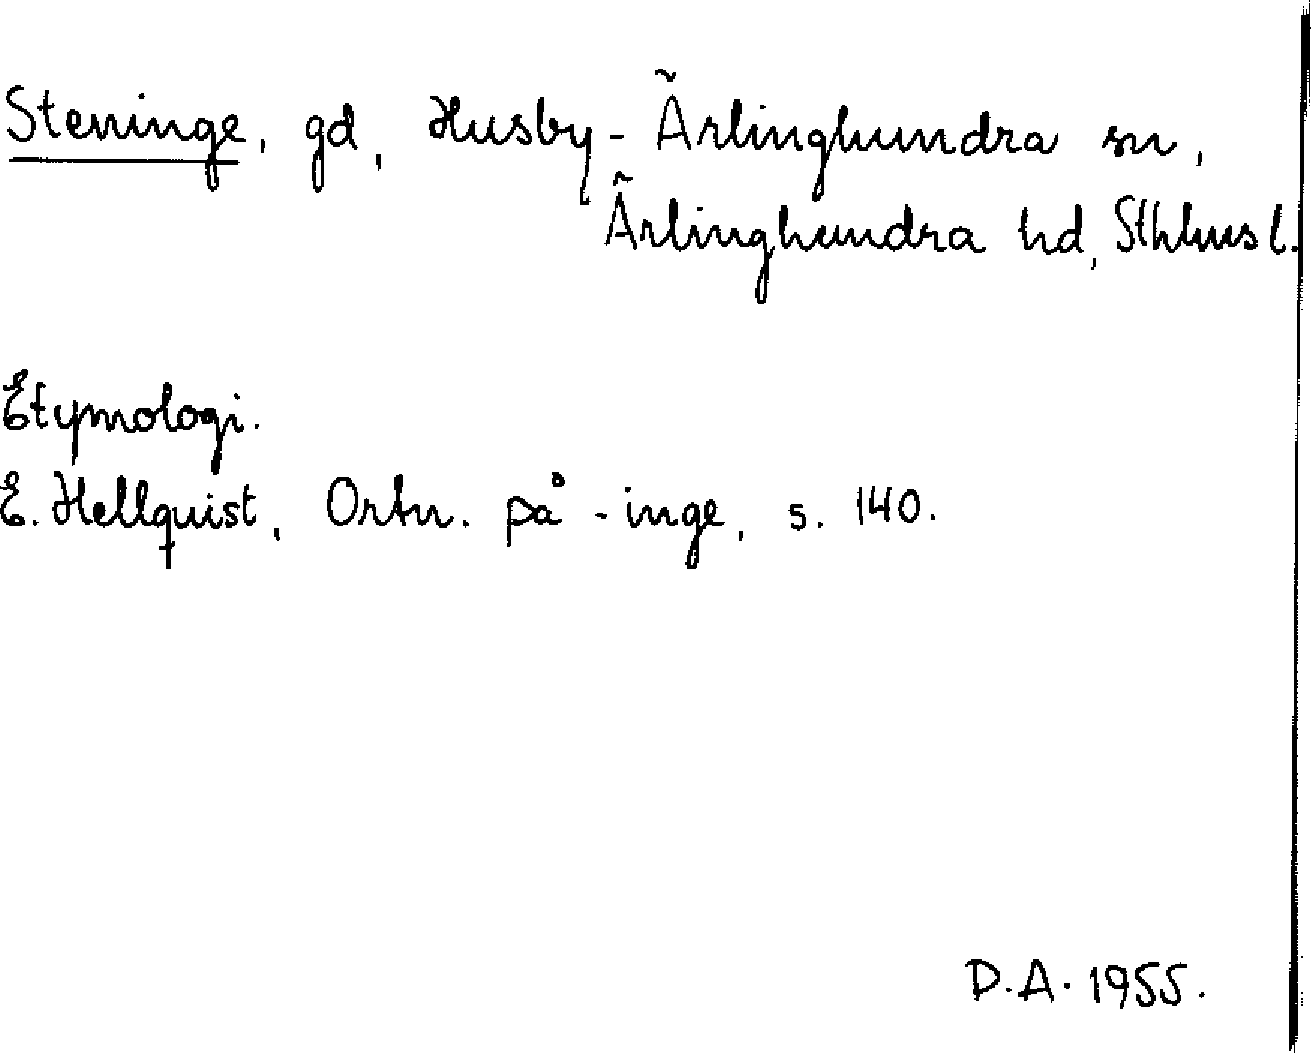 Steninge, gd, Husby-Ärlinghundra sn,
Ärlinghundra hd, Sthlms l.
Etymologi.
E. Hellquist, Ortn. på -inge, s. 140.
D.A. 1955.